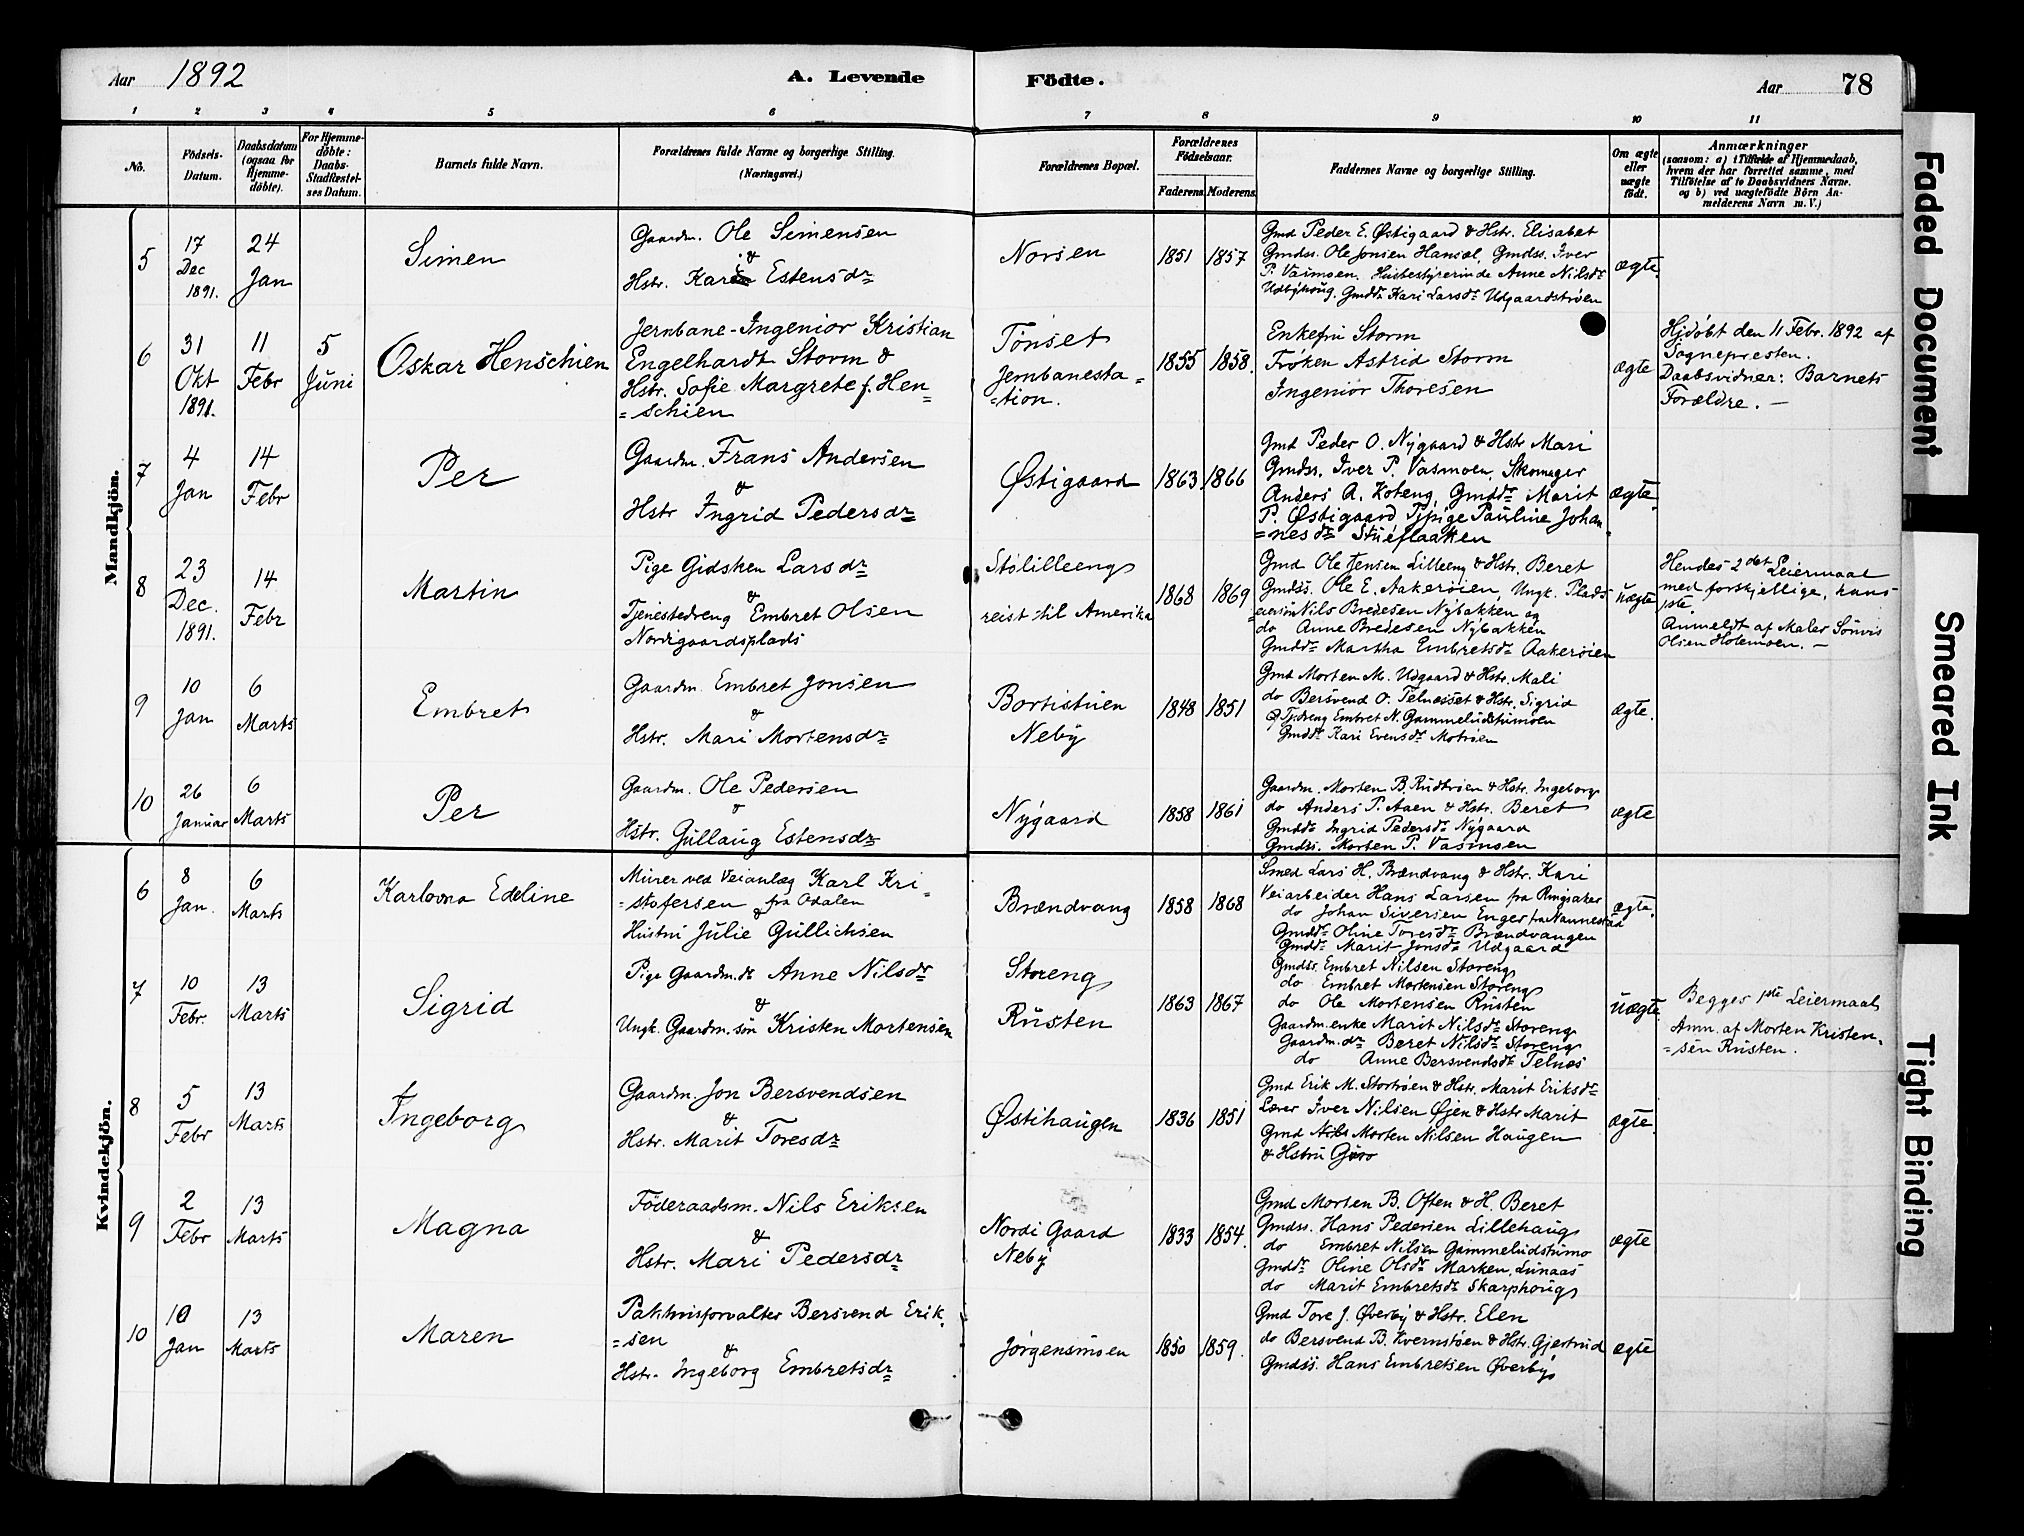 Aar 1892
A. Levende
Födte.
Aar
78
1 2 3 4 5 6 7 8 9 10 11
No.
Födsels-
Datum.
Daabsdatum
(ogsaa for
Hjemme-
döbte).
For Hjemme-
döbte:
Daabs-
Stadfæstel-
ses Datum.
Barnets fulde Navn.
Forældrenes fulde Navne og borgerlige Stilling.
(Næringsvei.)
Forældrenes Bopæl.
Forældrenes
Födselsaar.
Faderens. Moderens.
Faddernes Navne og borgerlige Stilling.
Om ægte
eller
uægte
födt.
Anmærkninger
(saasom: a) i Tilfælde af Hjemmedaab,
hvem der har forrettet samme, med
Tilföielse af to Daabsvidners Navne.
og b) ved uægtefödte Börn An-
melderens Navn m. V.)
Mandkjön.
5
17
Dec
1891.
24
Jan
Simen
Gaardm. Ole Simensen
&
Hstr. Kari Estensdr
Norsen
1851 1857
Gmd Peder E. Østigaard & Hstr. Elisabet
Gmdss. Ole Jonsen Hansæl, Gmdss. Iver
P. Vasmoen. Husbestyrerinde Anne Nilsdr
Udbyhoug. Gmddr Kari Larsdr Udgaardstrøen
ægte.
6
31
Okt
1891.
11
Febr
5
Juni
Oskar Henschien
Jernbane-Ingeniör Kristian
Engelhardt Storm &
Hstr. Sofie Margrete f. Hen=
=schien
Tönset
Jernbanesta=
=tion.
1855 1858.
Enkefru Storm
Fröken Astrid Storm
Ingeniör Thoresen
ægte
Hjdöbt den 11 Febr. 1892 af
Sognepresten.
Daabsvidner: Barnets
Forældre. —
7
4
Jan
14
Febr
Per
Gaardm. Frans Andersen
&
Hstr Ingrid Pedersdr
Østigaard
1863 1866
Gmd Peder O. Nygaard & Hstr Mari
Gmdss. Iver P. Vasmoen, Skomager
Anders A. Koteng, Gmddr Marit
P. Østigaard Tjpige Pauline Johan
=nesdr Stueflaatten
ægte.
8
23
Dec.
1891.
14
Febr
Martin
Pige Gidsken Larsdr
&
Tjenestedreng Embret Olsen
Nordigaardsplads
Stølilleeng
reist til Amerika
1868 1869
Gmd Ole Jensen Lilleeng & Hstr. Beret
Gmdss. Ole E. Aakerøien, Ungk. Plads=
=eiersön Nils Bredesen Nybakken og
do Anne Bredesen Nybakken
Gmddr Martha Embretsdr Aakerøien
uægte
Hendes 2det Leiermaal
med forskjellige, hans
1ste.
Anmeldt af Maler Sönvis
Olsen Holemoen. —
9
10
Jan
6
Marts
Embret
Gaardm. Embret Jonsen
&
Hstr. Mari Mortensdr
Bortistuen
Neby
1848 1851
Gmd Morten M. Udgaard & Hstr. Mali
do Bersvend O. Telnesset & Hstr. Sigrid
Tjdreng Embret N. Gammeludstumoen
Gmddr Kari Evensdr Motrøen
ægte.
10
26
Januar
6
Marts
Per
Gaardm. Ole Pedersen
&
Hstr. Gullaug Estensdr
Nygaard
1858 1861
Gaardm. Morten B. Rudtrøen & Hstr. Ingeborg
do Anders P. Aaen & Hstr. Beret
Gmddr Ingrid Pedersdr Nygaard
Gmdss. Morten P. Vasmoen
ægte
Kvindekjön.
6
8
Jan.
6
Marts
Karlovna Edeline
Murer ved Veianlæg Karl Kri=
=stofersen fra Odalen
&
Hustru Julie Gullichsen
Brændvang
1858 1868
Smed Lars H. Brændvang & Hstr. Kari
Veiarbeider Hans Larsen fra Ringsaker
do Johan Siversen Enger fra Nannestad
Gmddr Oline Toresdr Brændvangen
Gmddr Marit Jonsdr Udgaard
ægte.
7
10
Febr.
13
Marts
Sigrid
Pige Gaardm.dr Anne Nilsdr
&
Ungk. Gaardm.sön Kristen Mortensen
Storeng
Rusten
1863 1867
Gmdss. Embret Nilsen Storeng
do Embret Mortensen Storeng
do Ole Mortensen Rusten
Gaardm.enke Marit Nilsdr Storeng
Gaardm.dr Beret Nilsdr Storeng
do Anne Bersvendsdr Telnes
uægte.
Begges 1ste Leiermaal
Anm. af Morten Kristen=
=sen Rusten.
8
5
Febr
13
Marts
Ingeborg
Gaardm. Jon Bersvendsen
&
Hstr. Marit Toresdr
Østihaugen
1836 1851
Gmd Erik M. Stortrøen & Hstr. Marit Eriksdr
Lærer Iver Nilsen Øjen & Hstr Marit
Gmd Nils Morten Nilsen Haugen
& Hstru Guro
ægte.
9
2
Febr
13
Marts
Magna
Föderaadsm. Nils Eriksen
&
Hstr. Mari Pedersdr
Nordi Gaard
Neby
1833 1854.
Gmd Morten B. Often & H. Beret
Gmdss. Hans Pedersen Lillehaug
do Embret Nilsen Gammeludstumo
Gmddr Oline Olsdr Marken, Lunaas
do Marit Embretsdr Skarphoug
ægte
10
10
Jan
13
Marts
Maren
Pakhusforvalter Bersvend Erik.
=sen
&
Hstr. Ingeborg Embretsdr
Jørgensmoen
1850 1859.
Gmd Tore J. Øverby & Hstr. Elen
do Bersvend B. Kvernstøen & Hstr. Gjertrud
Gmdss. Hans Embretsen Øverby
ægte
Faded Document
Smeared Ink
Tight Binding